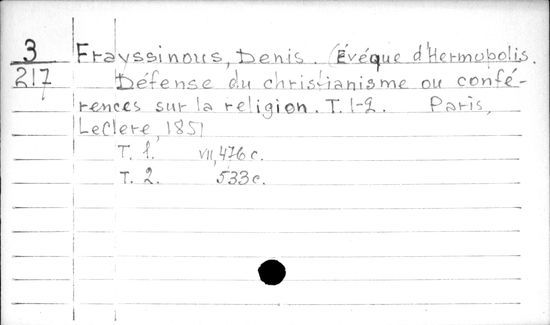 3 Frayssinous, Denis. (Évéque d'Hermopolis.
217 Défense du christianisme ou confé-
rences sur la religion. T. 1-2. Paris,
LeClere, 1851
T. 1. VII, 476 c.
T. 2. 533 c.